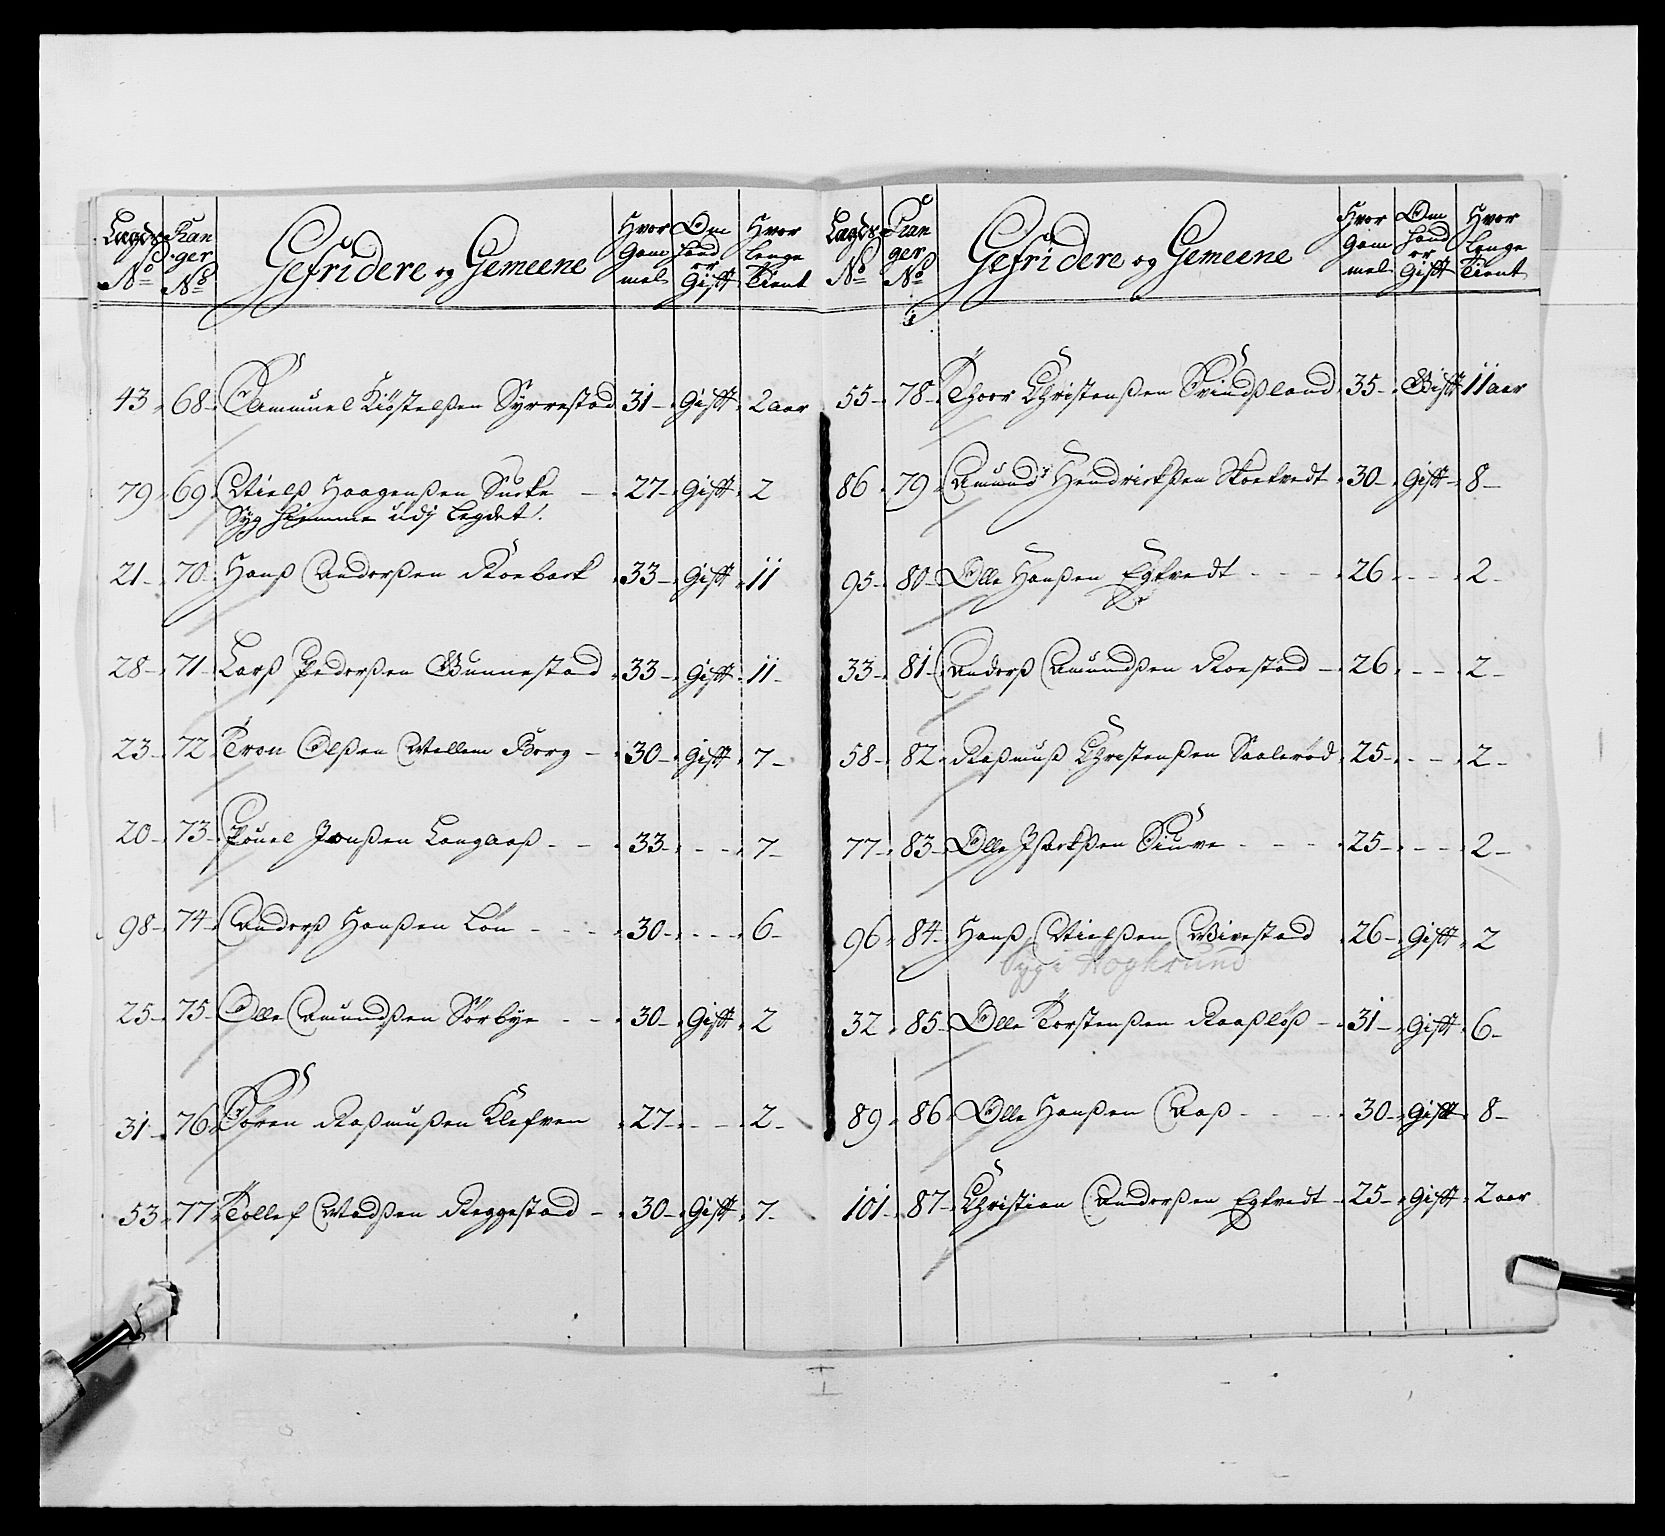 Lægds No | Ranger No | Gefridere og Gemeene | Hvor Gammel | Om hand er Gift | Hvor lenge Tient
43 68 Samuel Kiøstelßen Syrrestad 31 Gift 2 aar
79 69 Nielß Haagenßen Sucke 27 Gift 2
Syg hiemme udj Legdet.
21 70 Hanß Anderßen Roebæck 33 Gift 11
28 71 Larß Pederßen Gunnestad 33 Gift 11
23 72 Tron Olßen Mellem Borg 30 Gift 7
20 73 Pouel Jonßen Langaaß 33 - - - 7
98 74 Anderß Hanßen Løn 30 - - - 6
25 75 Olle Amundßen Sørbye 30 Gift 2
31 76 Søren Raßmußen Klefven 27 - - - 2
53 77 Tollef Madßen Reggestad 30 Gift 7
Lægds No | Ranger No | Gefridere og Gemeene | Hvor Gammel | Om hand er Gift | Hvor lenge Tient
55 78 Thoor Christenßen Svindßland 35 Gift 11 aar
86 79 Amund Hendrichßen Skoekvedt 30 Gift 8
95 80 Olle Hanßen Egkvedt 26 - - - 2
33 81 Anderß Amundßen Roestad 26 - - - 2
58 82 Raßmuß Christenßen Saalerød 25 - - - 2
77 83 Olle Isackßen Siuve 25 - - - 2
96 84 Hanß Nielßen Vivestad 26 Gift 2
Syg i
32 85 Olle Torstenßen Raaßløß 31 Gift 6
89 86 Olle Hanßen Aaß 30 Gift 8
101 87 Christian Anderßen Egkvedt 25 Gift 2 aar